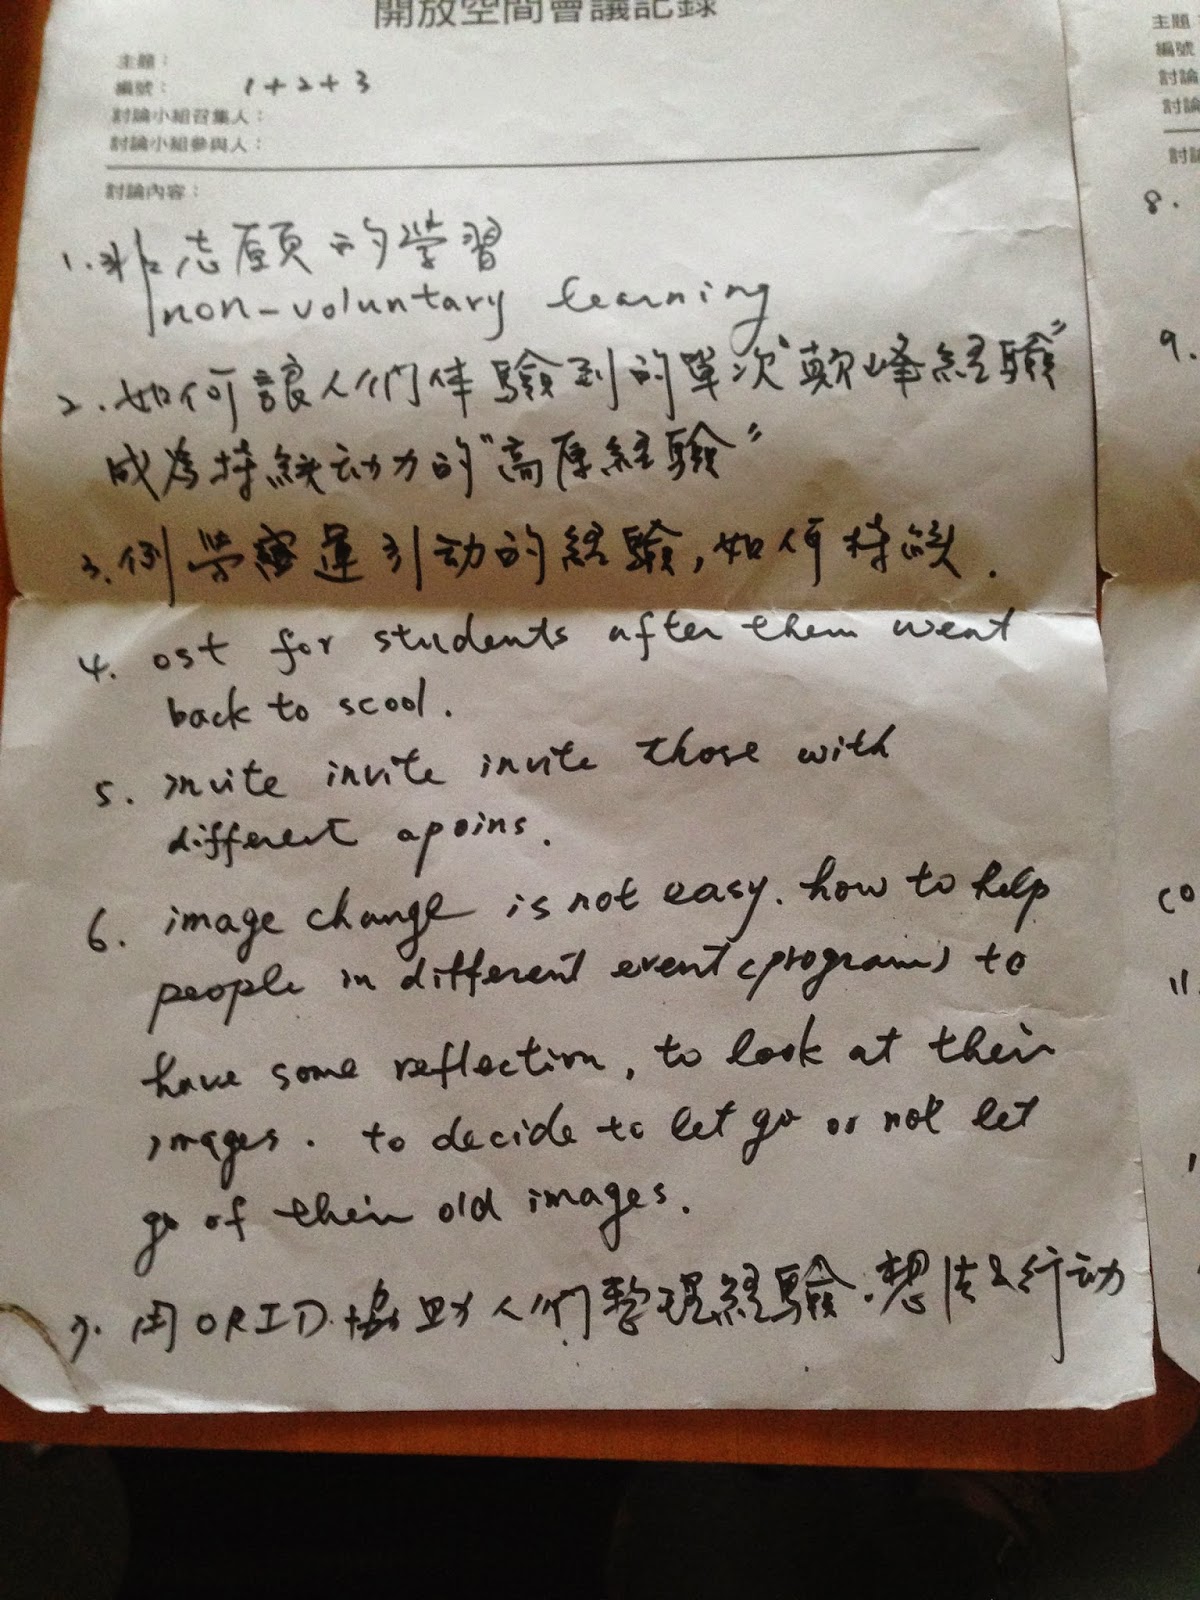 開放空間會議記錄
主題：
編號： 1+2+3
討論小組召集人：
討論小組參與人：
討論內容：
1. 非志願的学習
non-voluntary learning
2. 如何讓人们体驗到的單次"巅峰經驗"
成為持続动力的"高原經驗"
3. 例 学運引动的經驗, 如何持続.
4. ost for students after them went
back to scool.
5. invite invite invite those with
different apoins.
6. image change is not easy. how to help
people in different event (program) to
have some reflection, to look at their
images. to decide to let go or not let
go of their old images.
7. 用ORID協助人们整理經驗.想法&行动
主題
編號
討論
討論
討論
8.
9.
10
11.